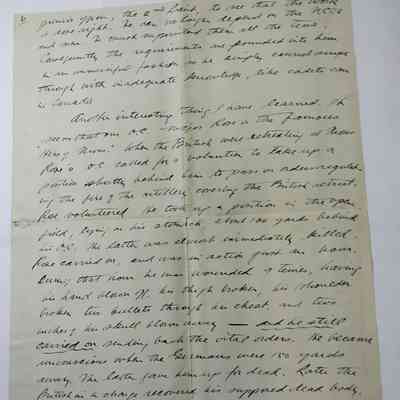 upon, the 2nd Lieut, to see that the work
is done right. He can no longer depend on the NCOs
and men so much must supervise them all the time.
Consequently the requirements are pounded into him
in no meaningful fashion as he simply cannot scrape
through with inadequate knowledge, like cadets can
in Canada.
Another interesting thing I have learned. It
seems that our O.C. Major Rose is the famous
Hero of Mons." When the British were retreating at Mons
Rose's O.C. called for a volunteer to take up a
position shortly behind him to pass on orders regulat-
ing the fire of the artillery covering the British retreat.
Rose volunteered. He took up a position in the open
field, lying on his stomach, about 100 yards behind
his O.C. The latter was almost immediately killed.
Rose carried on, and was in action just an hour.
During that hour he was wounded 9 times, having
his hand blown off, his thigh broken, his shoulder
broken, ten bullets through his chest, and two
inches of his skull blown away — and he still
carried on sending back the vital orders. He became
unconscious when the Germans were 150 yards
away. The latter gave him up for dead. Later the
British in a charge recovered his supposed dead body.